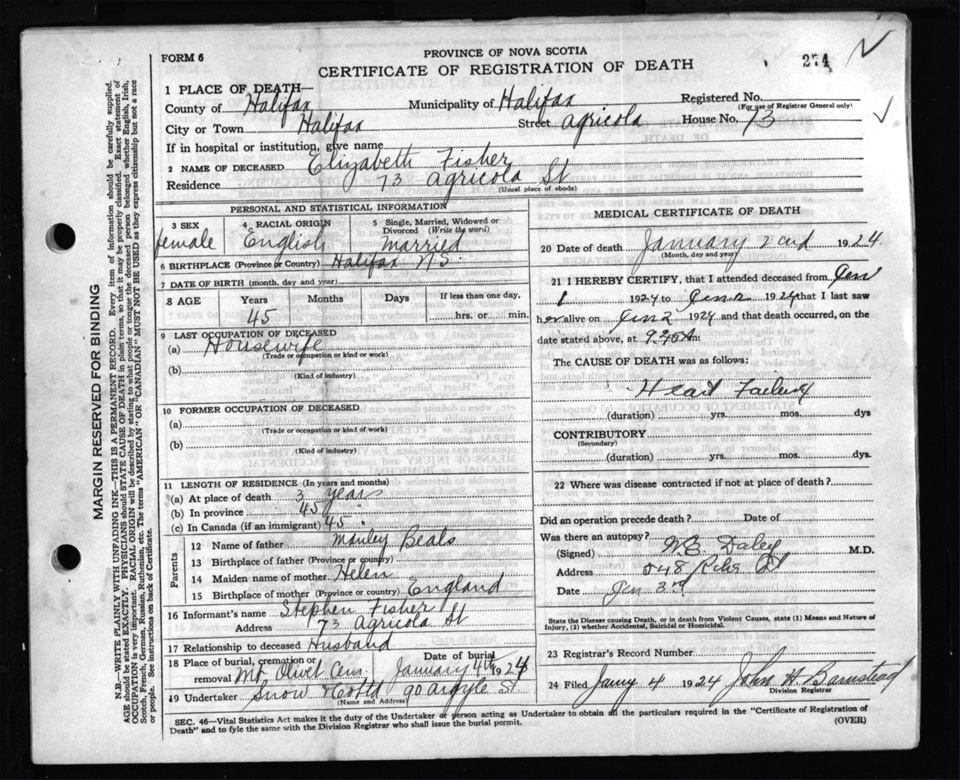 PROVINCE OF NOVA SCOTIA
FORM 6
CERTIFICATE OF REGISTRATION OF DEATH
274
1 PLACE OF DEATH—
County of Halifax Municipality of Halifax Registered No.
(For use of Registrar General only)
City or Town Halifax Street Agricola House No. 73
If in hospital or institution, give name
2 NAME OF DECEASED Elizabeth Fisher
Residence 73 Agricola St
(Usual place of abode)
PERSONAL AND STATISTICAL INFORMATION
3 SEX 4 RACIAL ORIGIN 5 Single, Married, Widowed or Divorced (Write the word)
female English married
6 BIRTHPLACE (Province or Country) Halifax N.S.
7 DATE OF BIRTH (month, day and year)
8 AGE Years Months Days If less than one day,
45 hrs. or min.
9 LAST OCCUPATION OF DECEASED
(a) Housewife
(Trade or occupation or kind or work)
(b)
(Kind of industry)
10 FORMER OCCUPATION OF DECEASED
(a)
(Trade or occupation or kind of work)
(b)
(Kind of industry)
11 LENGTH OF RESIDENCE (In years and months)
(a) At place of death 3 years
(b) In province 45
(c) In Canada (if an immigrant) 45
Parents
12 Name of father Manley Beals
13 Birthplace of father (Province or country)
14 Maiden name of mother Helen
15 Birthplace of mother (Province or country) England
16 Informant's name Stephen Fisher
Address 73 Agricola St
17 Relationship to deceased Husband
18 Place of burial, cremation or removal Mt Olivet Cem. Date of burial January 4th 1924
19 Undertaker Snow & Co Ltd 90 Argyle St
(Name and Address)
MEDICAL CERTIFICATE OF DEATH
20 Date of death January 2nd 1924
(Month, day and year)
21 I HEREBY CERTIFY, that I attended deceased from Jan
1 1924 to Jan 2 1924 that I last saw
her alive on Jan 2 1924 and that death occurred, on the
date stated above, at m.
The CAUSE OF DEATH was as follows:
Heart Failure
(duration) yrs. mos. dys
CONTRIBUTORY
(Secondary)
(duration) yrs. mos. dys.
22 Where was disease contracted if not at place of death?
Did an operation precede death? Date of
Was there an autopsy?
(Signed) W. B. Daley M.D.
Address St
Date Jan 3rd
State the Disease causing Death, or in death from Violent Causes, state (1) Means and Nature of
Injury, (2) whether Accidental, Suicidal or Homicidal.
23 Registrar's Record Number
24 Filed Jany 4 1924 John H Barnstead
Division Registrar
SEC. 46—Vital Statistics Act makes it the duty of the Undertaker or person acting as Undertaker to obtain all the particulars required in the "Certificate of Registration of
Death" and to fyle the same with the Division Registrar who shall issue the burial permit.
(OVER)
MARGIN RESERVED FOR BINDING
N.B.—WRITE PLAINLY WITH UNFADING INK—THIS IS A PERMANENT RECORD. Every item of information should be carefully supplied.
AGE should be stated EXACTLY. PHYSICIANS should STATE CAUSE OF DEATH in plain terms, so that it may be properly classified. Exact statement of
OCCUPATION is very important. RACIAL ORIGIN will be described by stating to what people or tongue the deceased person belonged whether English, Irish,
Scotch, French, German, Russian, Ruthenian, etc. The terms "AMERICAN" OR "CANADIAN" MUST NOT BE USED as they express citizenship but not a race
or people. See instructions on back of Certificate.